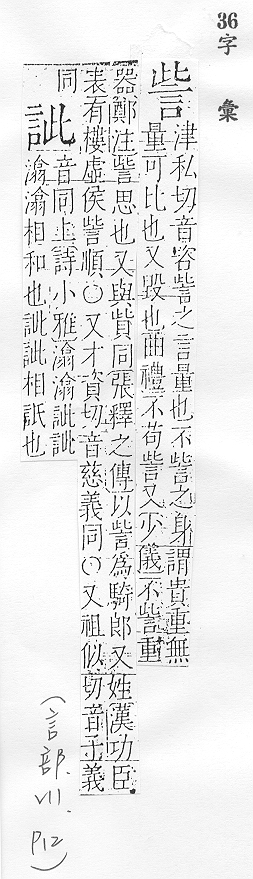 36
字彙
訾
津私切音咨訾之言量也不訾之身謂貴重無
量可比也又毀也曲禮不苟訾又少儀不訾重
器鄭注訾思也又與貲同張釋之傳以訾為騎郎又姓漢功臣
表有樓虛侯訾順○又才資切音慈義同○又祖似切音子義
同
訿
音同上詩小雅潝潝訿訿
潝潝相和也訿訿相詆也
(言部.VII.P12)